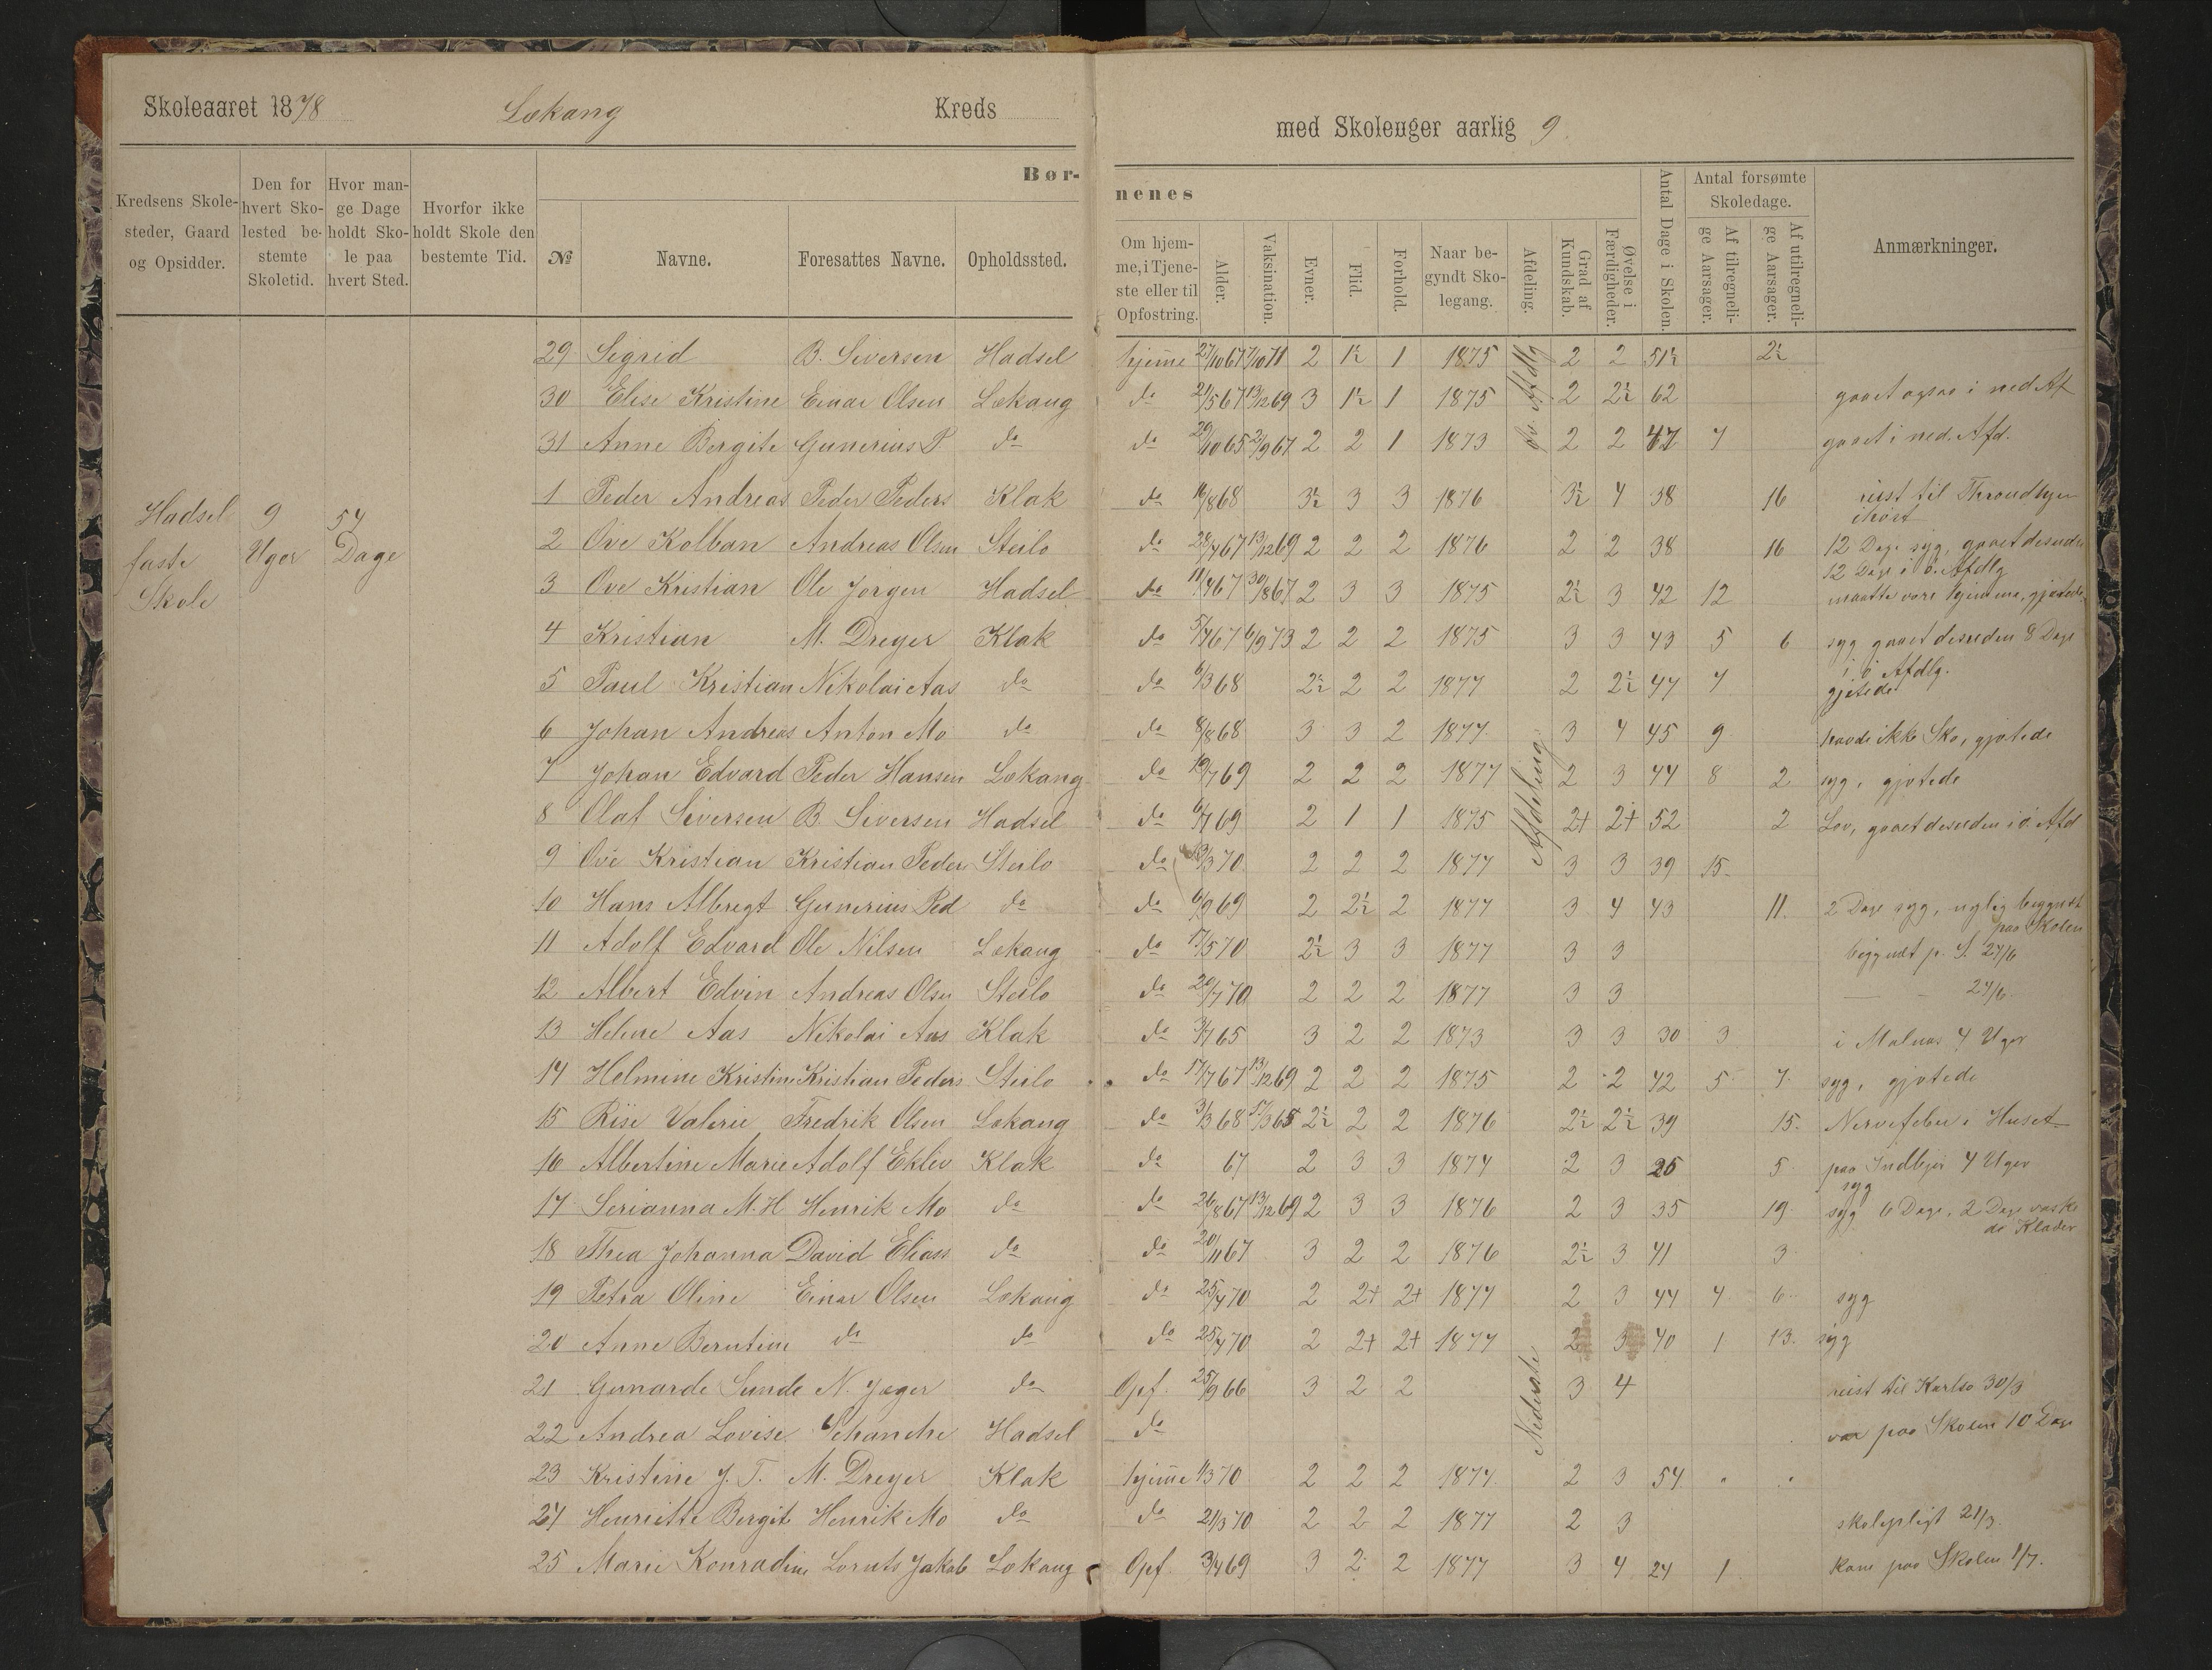 Skoleaaret 1878 Lekang Kreds
med Skoleuger aarlig 9
Kredsens Skolesteder, Gaard og Opsidder.
Den for hvert Skolested bestemte Skoletid.
Hvor mange Dage holdt Skole paa hvert Sted.
Hvorfor ikke holdt Skole den bestemte Tid.
Børnenes
№
Navne.
Foresattes Navne.
Opholdssted.
Om hjemme, i Tjeneste eller til Opfostring.
Alder.
Vaksination.
Evner.
Flid.
Forhold.
Naar begyndt Skolegang.
Afdeling.
Grad af Kundskab.
Øvelse i Færdigheder.
Antal Dage i Skolen.
Antal forsømte Skoledage.
Af tilregnelige Aarsager.
Af utilregnelige Aarsager.
Anmærkninger.
Hadsel faste Skole
9 Uger
54 Dage
29 Sigrid B. Siversen Hadsel hjemme 27/10 67 7/10 71 2 1½ 1 1875 2 2 51½ 2½
øv. Afdlg
30 Elise Kristine Einar Olsen Lekang do 21/5 67 13/12 69 3 1½ 1 1875 2 2½ 62 gaaet ogsaa i ned Af
31 Anne Bergite Gunerius P do do 29/10 65 2/9 67 2 2 1 1873 2 2 47 7 gaaet i ned. Afd.
1 Peder Andreas Peder Peders Klak do 16/8 68 3½ 3 3 1876 3½ 4 38 16 reist til Throndhjem ihøst
2 Ove Kolban Andreas Olsen Steilo do 28/7 67 13/12 69 2 2 2 1876 2 2 38 16 12 Dage syg, gaaet desuden 12 Dage i ö. Afdlg
3 Ove Kristian Ole Jørgen Hadsel do 11/4 67 30/8 67 2 3 3 1875 2½ 3 42 12 maatte være hjemme, gjætede
4 Kristian M. Dreyer Klak do 5/7 67 6/9 73 2 2 2 1875 3 3 43 5 6 syg gaaet desuden 8 Dage i ö Afdlg.
5 Paul Kristian Nikolai Aas do do 6/3 68 2½ 2 2 1877 2 2½ 47 7 gjetede
6 Johan Andreas Anton Mo do do 8/8 68 3 3 2 1877 3 4 45 9 havde ikke Sko, gjætede
7 Johan Edvard Peder Hansen Lekang do 19/7 69 2 2 2 1877 2 3 44 8 2 syg, gjætede
8 Olaf Siversen B. Siversen Hadsel do 6/7 69 2 1 1 1875 2+ 2+ 52 2 Lov, gaaet desuden i ö. Afd
9 Ove Kristian Kristian Peder Steilo do 13/3 70 2 2 2 1877 3 3 39 15
10 Hans Albregt Gunerius Ped do do 6/9 69 2 2½ 2 1877 3 4 43 11 2 Dage syg, nylig begyndt paa Skolen
11 Adolf Edvard Ole Nilsen Lekang do 17/5 70 2½ 3 3 1877 3 3 begyndt p. S. 27/6
12 Albert Edvin Andreas Olsen Steilo do 20/7 70 2 2 2 1877 3 3 — - 27/6
13 Helene Aas Nikolai Aas Klak do 3/7 65 3 2 2 1873 3 3 30 3 i Malnes 4 Uger
14 Helmine Kristine Kristian Peders Steilo do 17/7 67 13/12 69 2 2 2 1875 2 2 42 5 7 syg, gjætede
15 Risе Valerie Fredrik Olsen Lekang do 3/3 68 2½ 2 2 1876 2½ 2½ 39 15 Nervefeber i Huset
16 Albertine Marie Adolf Eklev Klak do 67 2 3 3 1874 2 3 26 5 4 Uger syg
17 Serianna M. H Henrik Mo do do 26/8 67 13/12 69 2 3 3 1876 2 3 35 19 syg 6 Dage, 2 Dage vaskede Klæder
18 Thea Johanna David Elias do do 20/11 67 3 2 2 1876 2½ 3 41 3
19 Petra Oline Einar Olsen Lekang do 25/4 70 2 2+ 2+ 1877 2 3 44 4 6 syg
20 Anne Berntine do do do 25/4 70 2 2+ 2+ 1877 2 3 40 1 13 syg
21 Gunarde Sunde N. Jæger do Opf. 25/9 66 3 2 2 3 4 reist til Karlsø 30/3
22 Andrea Lovise Schanche Hadsel do var paa Skolen 10 Dage
Nederste Afdeling
23 Kristine J. T. M. Dreyer Klak hjemme 1/3 70 2 2 2 1877 2 3 54
24 Henriette Bergit Henrik Mo do do 21/3 70 2 2 2 1877 2 3 skolepligt 21/3
25 Marie Konradine Loruts Jakob Lekang Opf. 3/4 69 3 2 2 1877 3 4 24 1 kom paa Skolen 1/7.